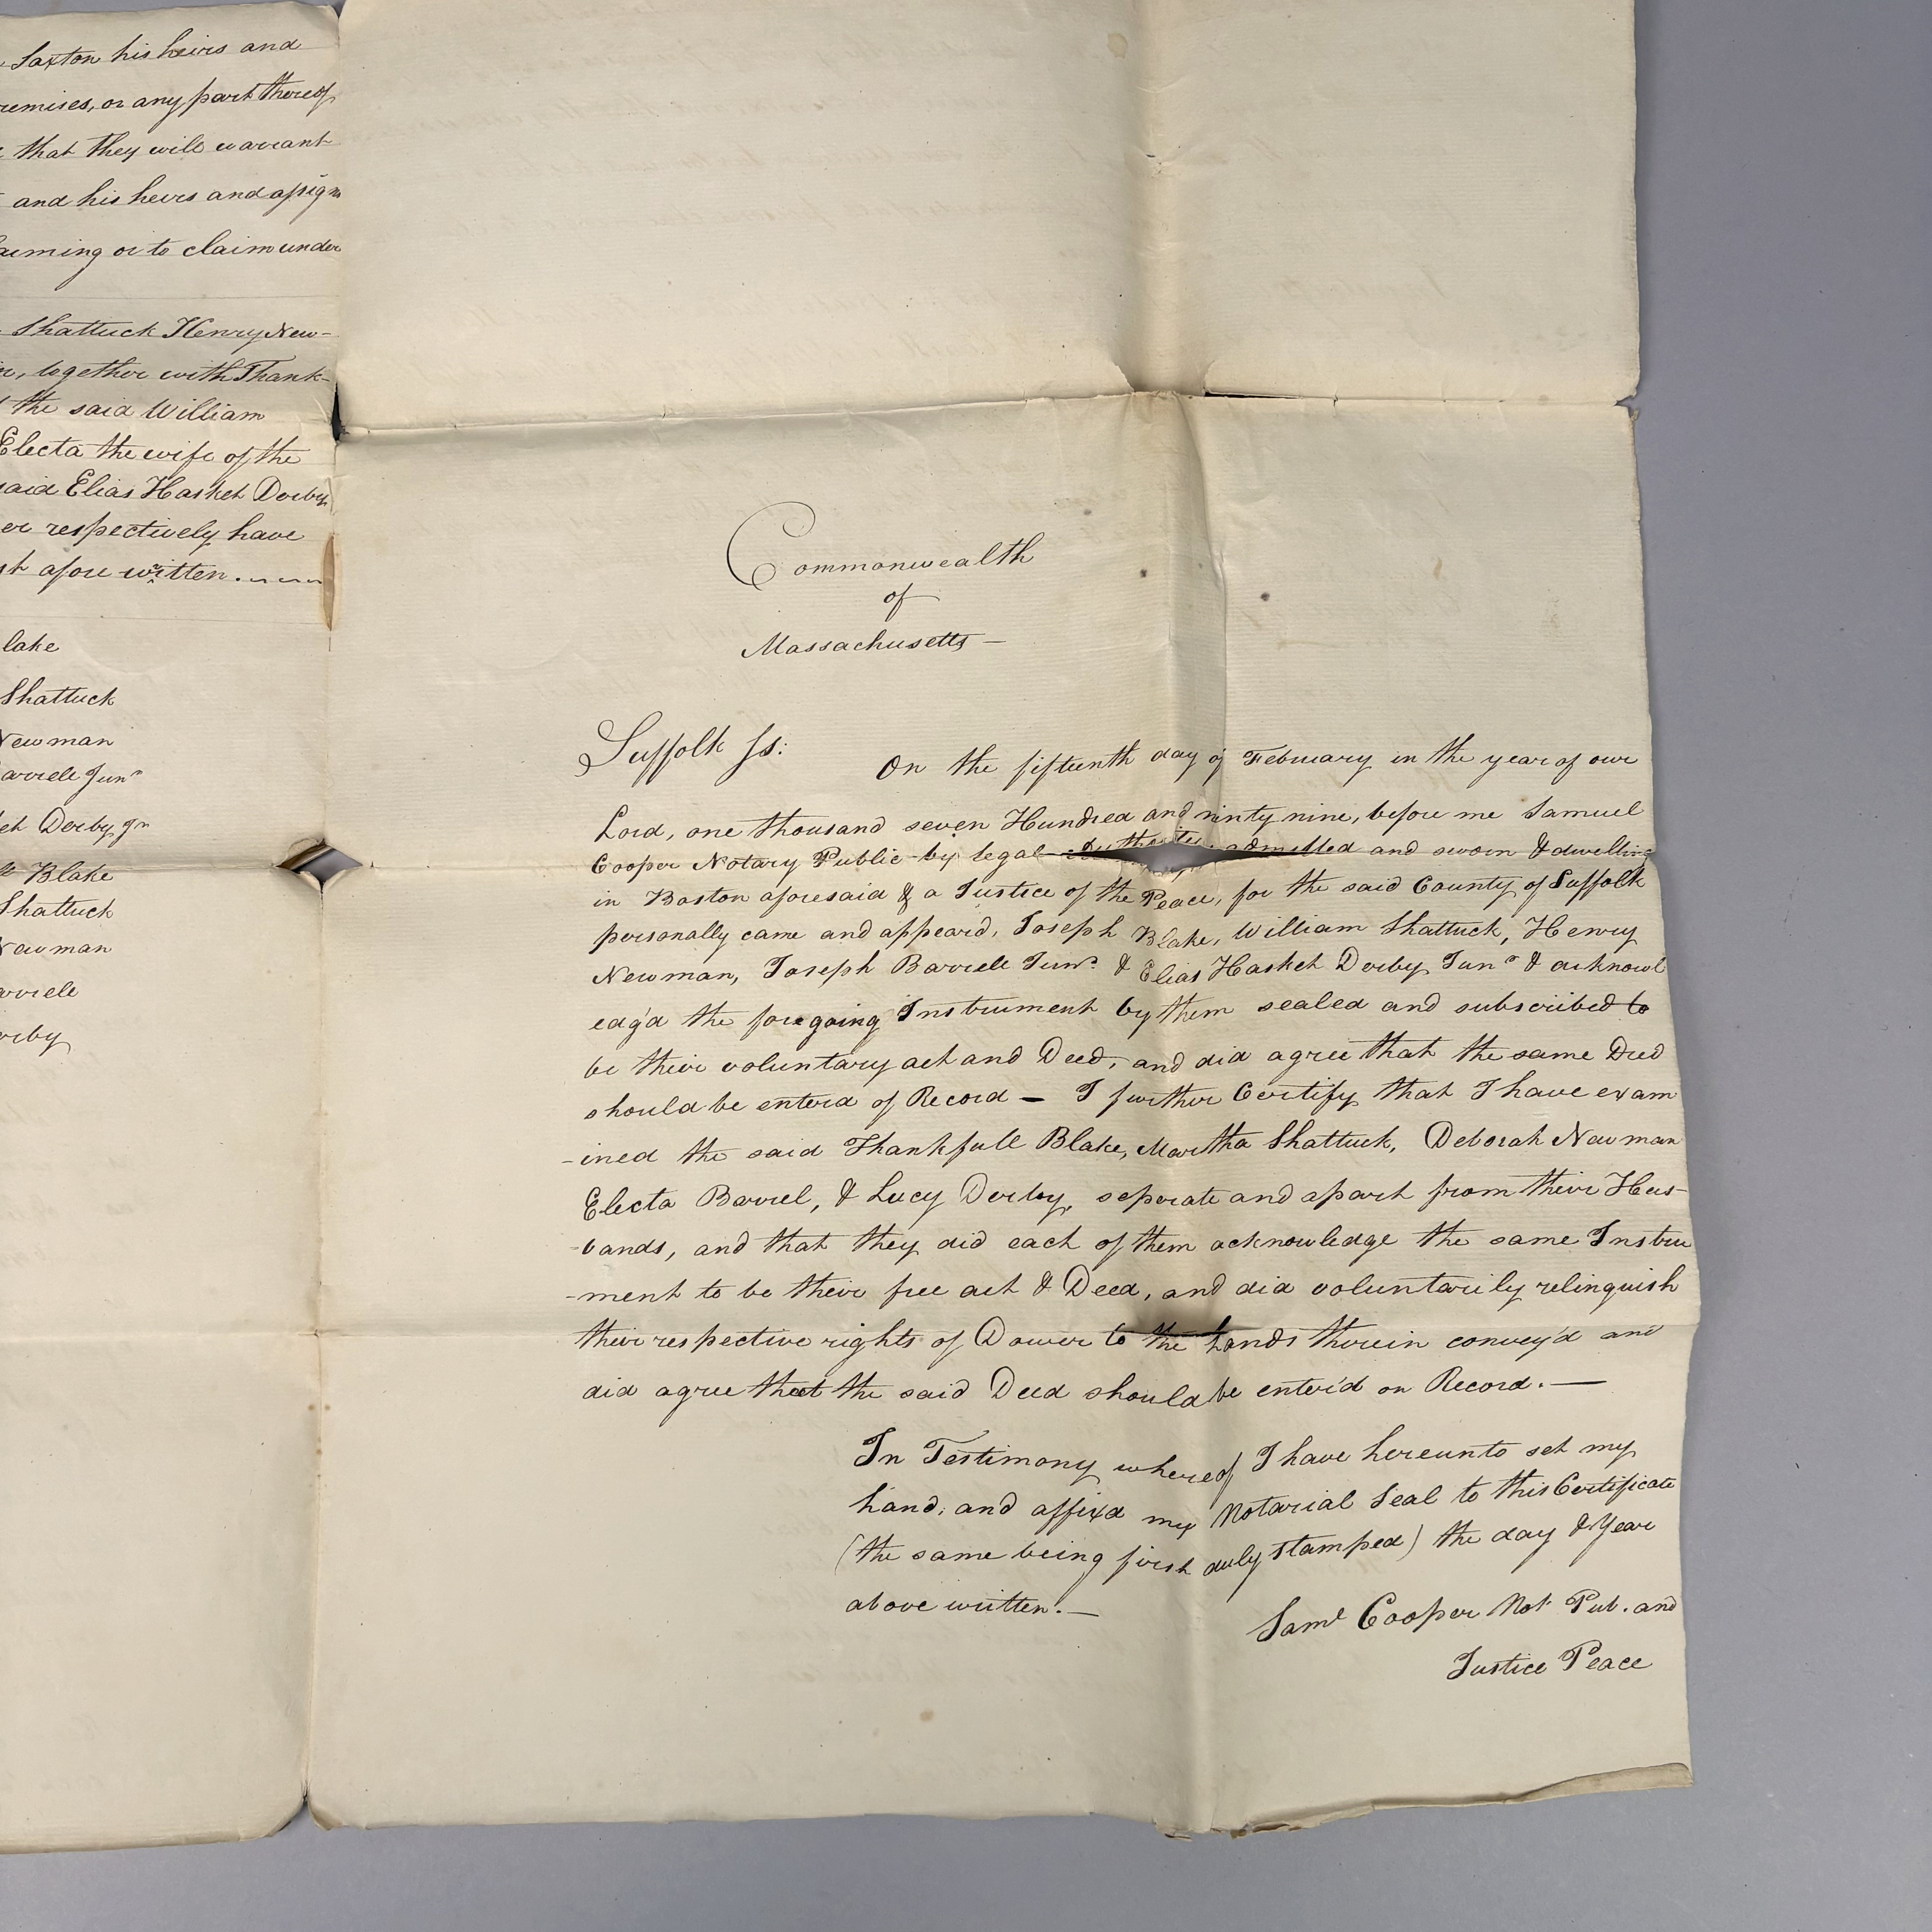 Saxton his heirs and
remises, or any part thereof
that they will warrant
and his heirs and assigns
aiming or to claim under
Shattuck Henry New-
together with Thank-
the said William
Electa the wife of the
said Elias Hasket Derby
er respectively have
st afore written.
lake
Shattuck
Newman
arrell Junr
et Derby Jr
ll Blake
Shattuck
Newman
arrell
erby
Commonwealth
of
Massachusetts —
Suffolk Ss: On the fifteenth day of February in the year of our
Lord, one thousand seven Hundred and ninty nine, before me Samuel
Cooper Notary Public by legal admitted and sworn & dwelling
in Boston aforesaid & a Justice of the Peace, for the said County of Suffolk
personally came and appeard, Joseph Blake, William Shattuck, Henry
Newman, Joseph Barrell Junr. & Elias Hasket Derby Junr & acknowl
edg'd the foregoing Instrument by them sealed and subscribed to
be their voluntary act and Deed, and did agree that the same Deed
should be enterd of Record — I further Certify that I have exam
-ined the said Thankfull Blake, Martha Shattuck, Deborah Newman
Electa Barrel, & Lucy Derby, seperate and apart from their Hus-
-bands, and that they did each of them acknowledge the same Instru
-ment to be their free act & Deed, and did voluntarily relinquish
their respective rights of Dower to the Lands therein convey'd and
did agree that the said Deed should be enter'd on Record. —
In Testimony whereof I have hereunto set my
hand, and affixd my Notarial Seal to this Certificate
(the same being first duly stamped) the day & Year
above written. —
Saml Cooper Not. Pub. and
Justice Peace